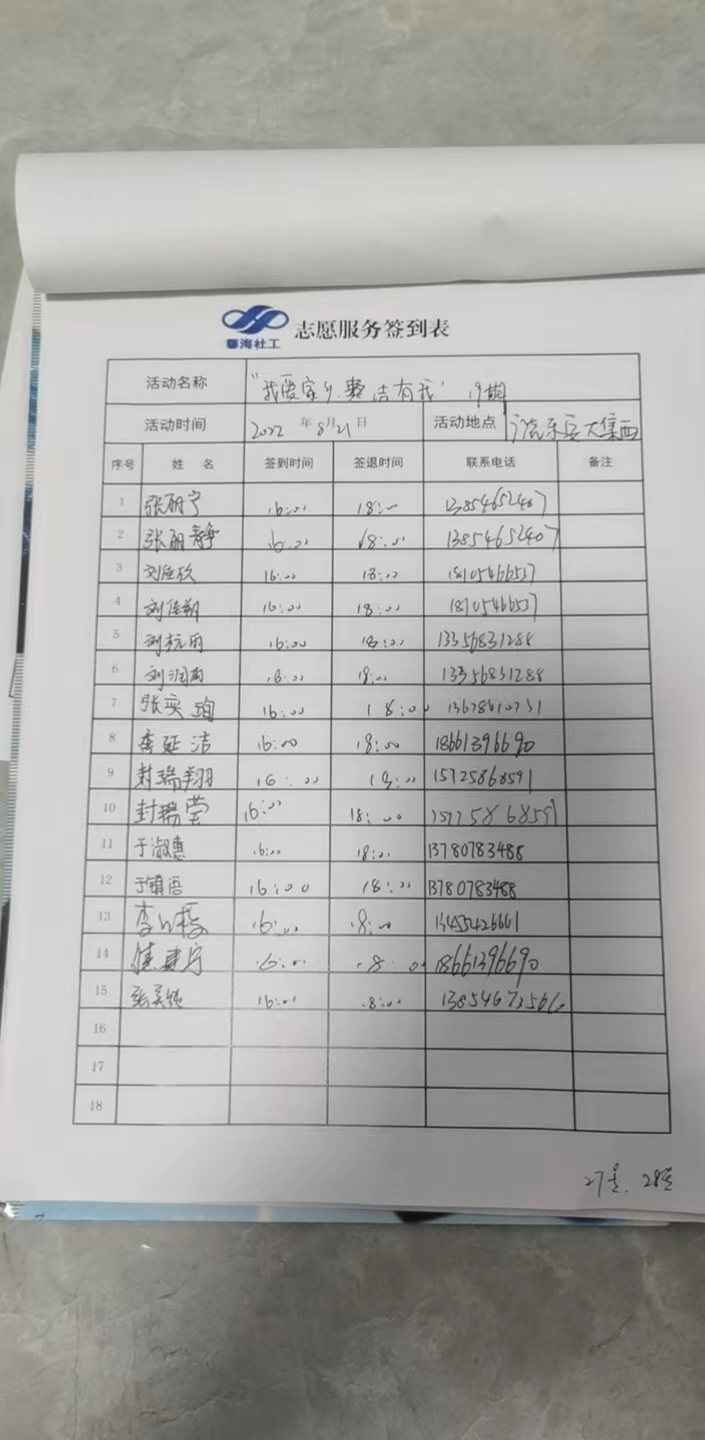 馨海社工 志愿服务签到表
活动名称 "我爱家乡.整洁有我" 19期
活动时间 2022 年 8月21日 活动地点 大集西
序号 姓 名 签到时间 签退时间 联系电话 备注
1 张丽宁 16:00 18:00 13854652407
2 张丽静 16:00 18:00 13854652407
3 刘佳欣 16:00 18:00
4 刘佳朔 16:00 18:00
5 刘杭雨 16:00 18:00 13356831288
6 刘润雨 16:00 18:00 13356831288
7 张奕珣 16:00 18:00
8 李延洁 16:00 18:00 18661396690
9 封瑞翔 16:00 18:00 15725868591
10 封瑞莹 16:00 18:00 15725868591
11 于淑惠 16:00 18:00 13780783488
12 于镇语 16:00 18:00 13780783488
13 16:00 18:00
14 16:00 18:00 18661396690
15 16:00 18:00
16
17
18
27号. 28号